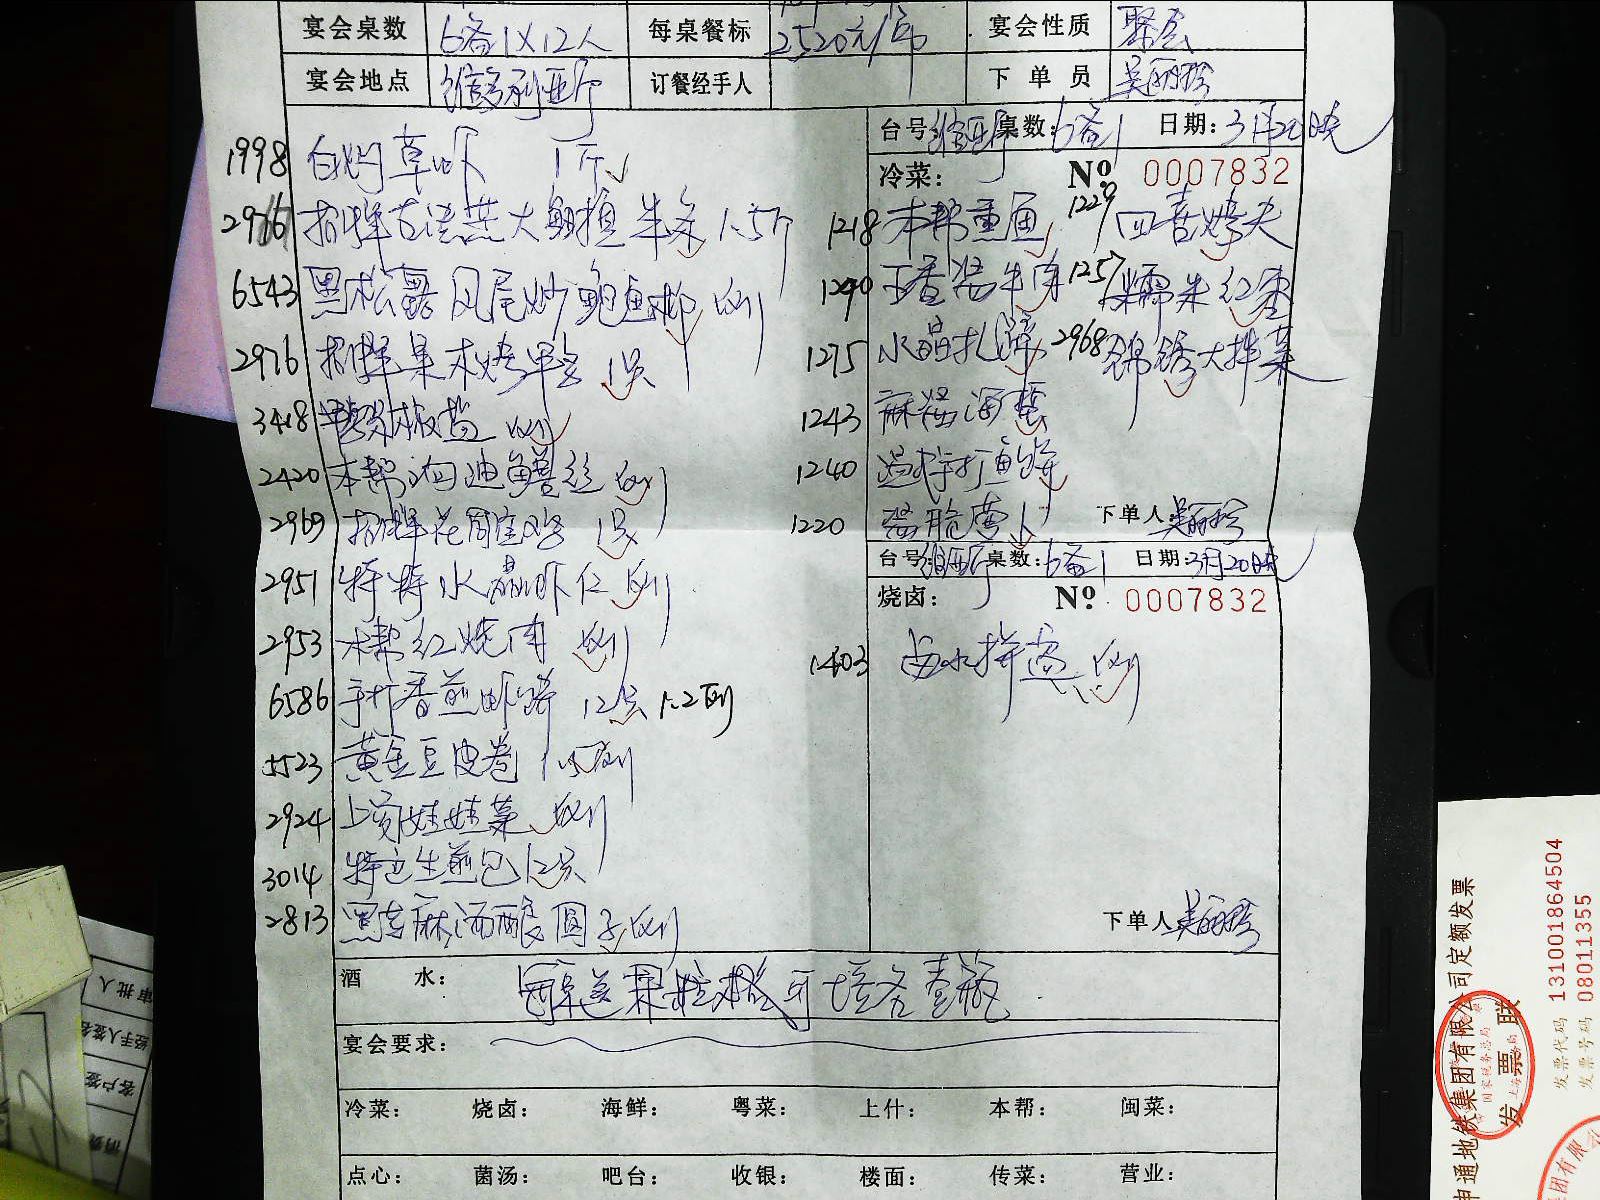 宴会桌数 6备1×12人 每桌餐标 2520元/席 宴会性质 聚会
宴会地点 维多利亚厅 订餐经手人 下单员 吴丽珍
1998 白灼草虾 1斤
2976 招牌古法蒸大 1.5斤
6543 黑松露凤尾炒鲍鱼 例
2976 招牌果木烤 1只
3418 椒盐 例
2420 本帮 鳝丝 例
2969 招牌花雕 鸡 1只
2951 特特水晶虾仁 例
2953 本帮红烧肉 例
6586 手打香煎虾饼 12只 1.2例
5523 黄金豆皮卷 1.5例
2924 上汤娃娃菜 例
3014 特色生煎包 12只
2813 黑芝麻酒酿圆子 例
台号: 桌数: 6备1 日期: 3月20晚
冷菜: № 0007832
1218 本帮熏鱼 1229 四喜烤夫
1290 丁香酱牛肉 1257 糯米红枣
1275 水晶扎蹄 2968 锦绣大拌菜
1243 麻酱海蜇
1240
1220 酱脆萝卜 下单人 吴丽珍
台号: 桌数: 6备1 日期: 3月20晚
烧卤: № 0007832
1403 卤水拼盘 例
下单人 吴丽珍
酒 水: 可 各壹瓶
宴会要求:
冷菜: 烧卤: 海鲜: 粤菜: 上什: 本帮: 闽菜:
点心: 菌汤: 吧台: 收银: 楼面: 传菜: 营业:
审批人
经手人签名
客户签
申通地铁集团有限公司定额发票
发票联
发票代码 131001864504
发票号码 08011355